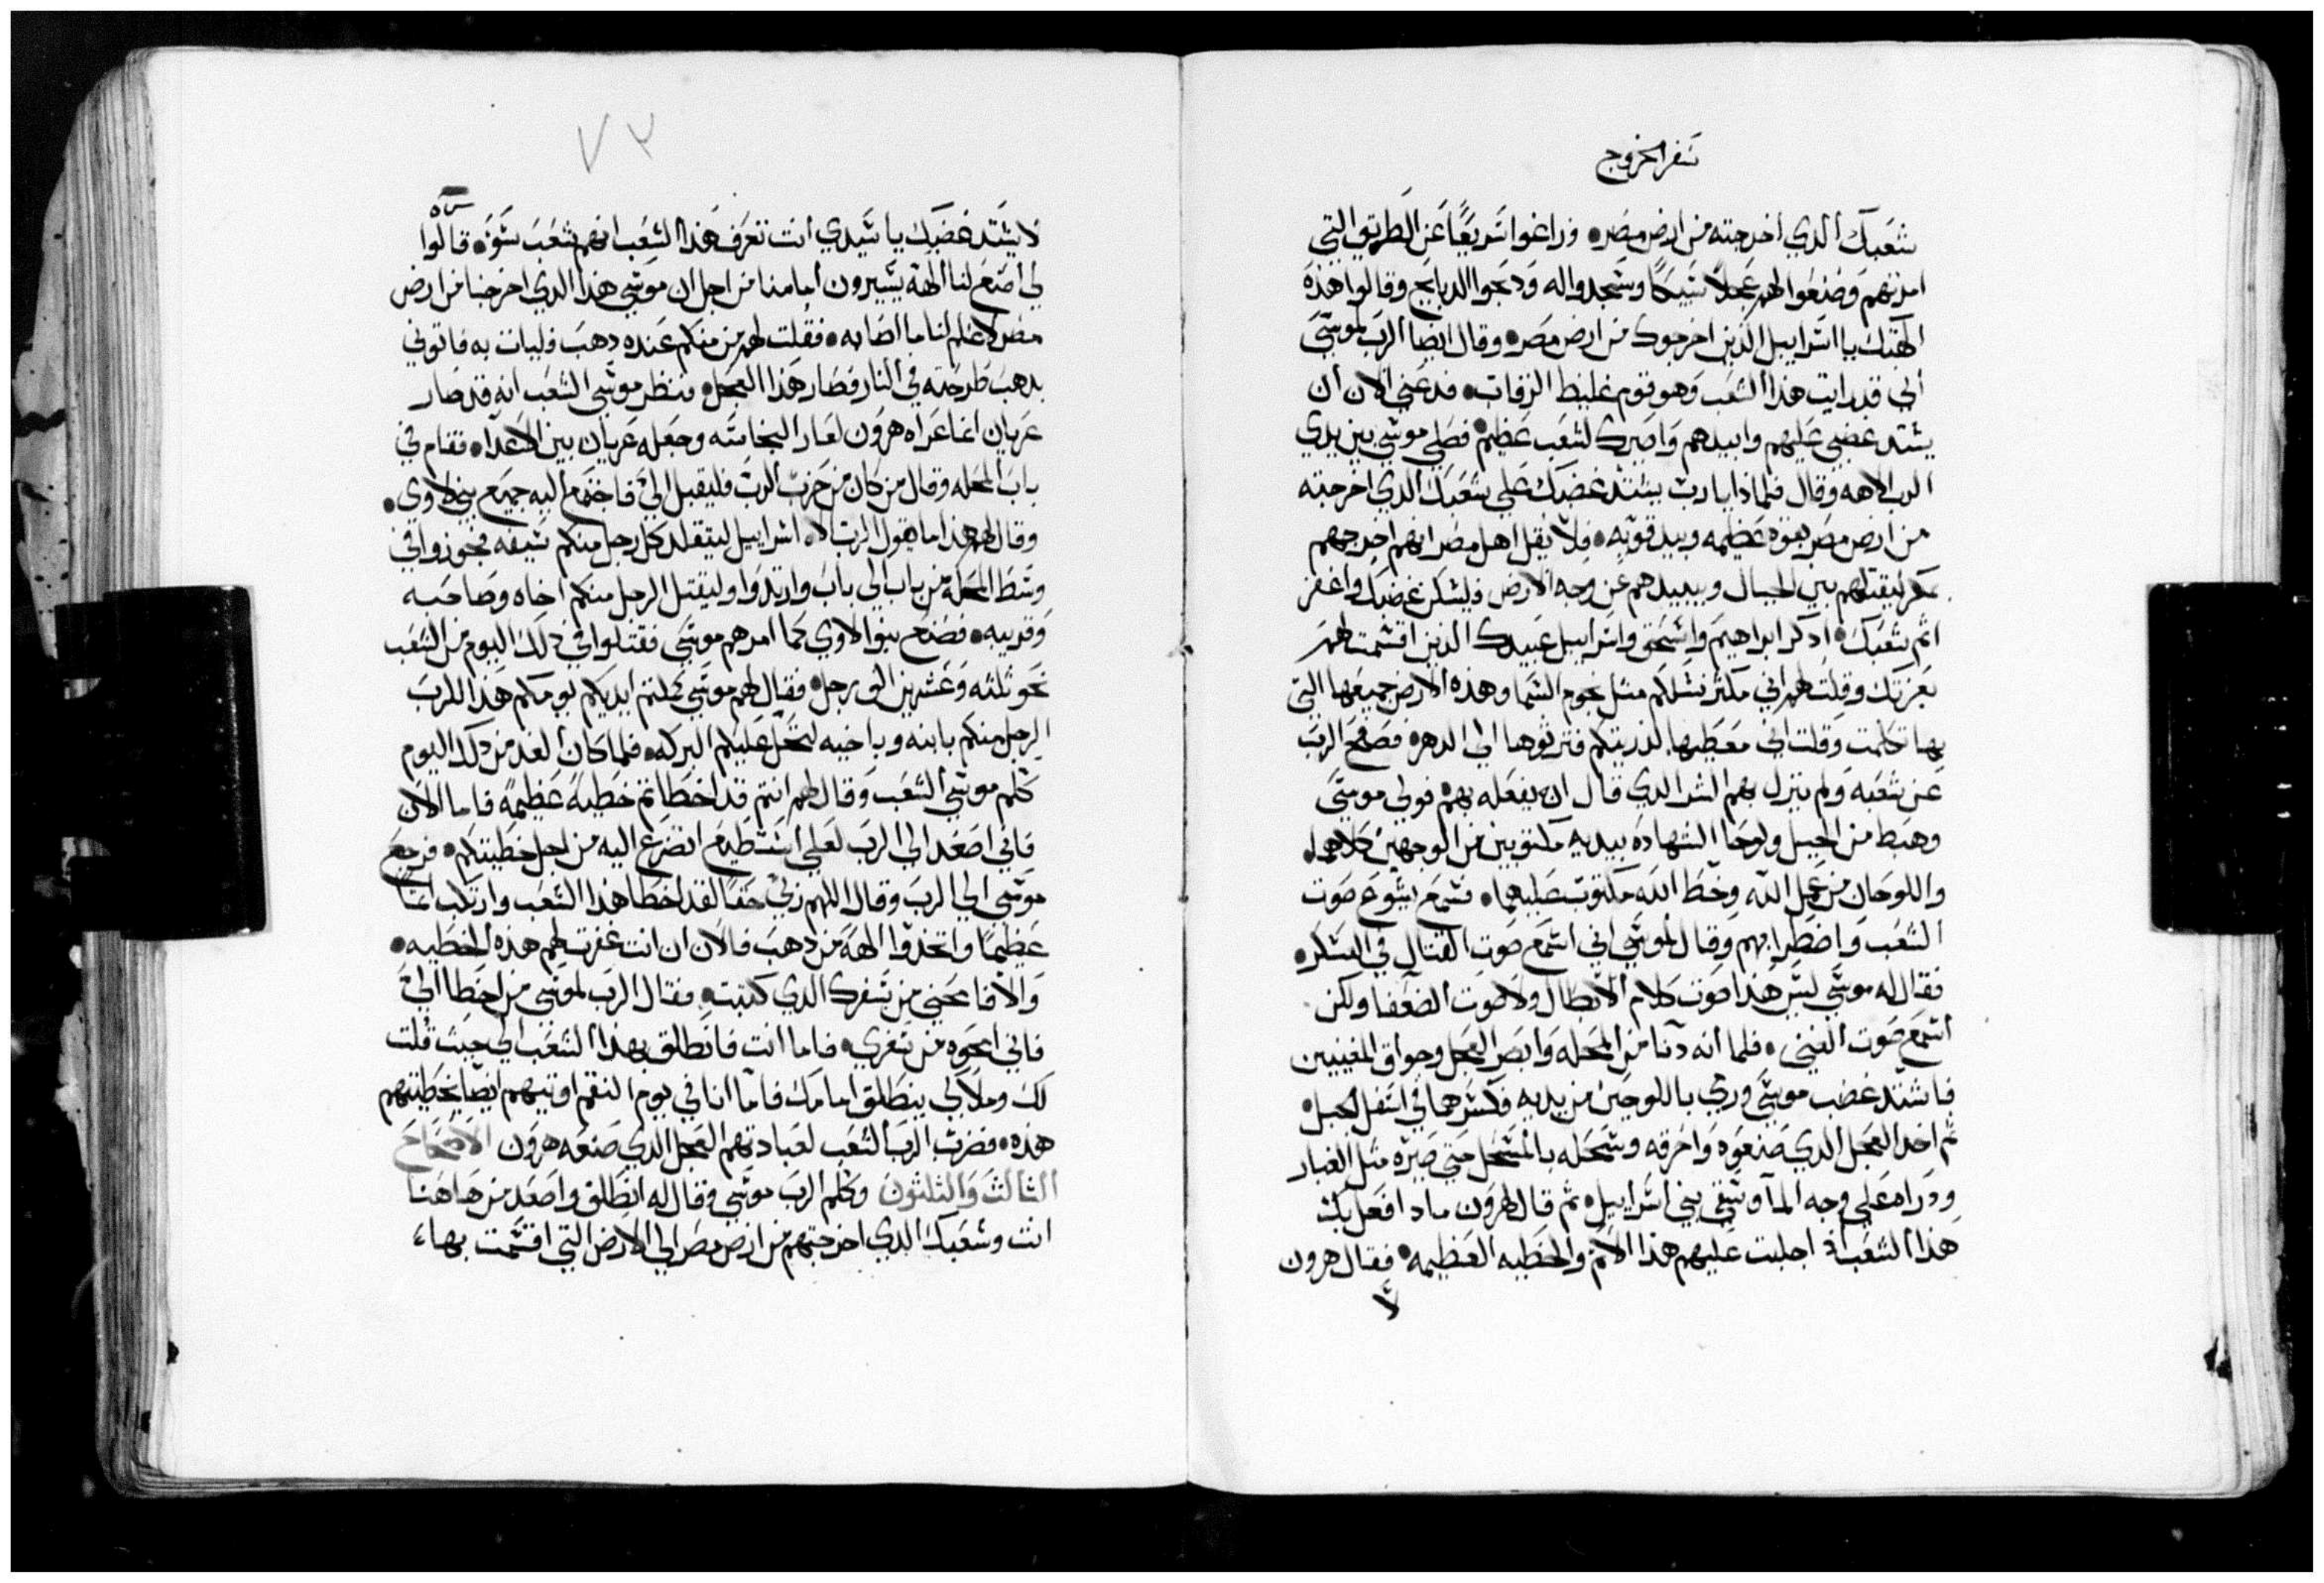 سفر الخروج
شعبك الدي اخرجته من ارض مصر • وزاغوا سريعًا عن الطريق التي
امرتهم وصنعوا لهم عجلاً سبيكًا وسجدوا له ودبحوا الدبايح وقالوا هذه
الهتك يا اسراييل الذين اخرجوك من ارض مصر • وقال ايضا الرب لموسى
اني قد رايت هذا الشعب وهو قوم غليظ الرقاب • فدعني الان ان
يشتد غضبي عليهم وابيدهم واصيرك لشعب عظيم • فصلي موسي بين يدي
الرب الاهه وقال فلماذا يارب يشتد غضبك علي شعبك الدي اخرجته
من ارض مصر بقوه عظيمه وبيد قويه • فلا يقل اهل مصر انهم اخرجهم
بمكر ليقتلهم بين الجبال ويبيدهم عن وجه الارض فليسكن غضبك واغفر
اثم شعبك • ادكر ابراهيم واسحق واسراييل عبيدك الذين اقسمت لهم
بعزتك وقلت لهم اني مكثر نسلكم مثل نجوم السما وهذه الارض جميعها التي
بها تكلمت وقلت اني معطيها لذريتكم فترثوها الي الدهر • فصفح الرب
عن شعبه ولم ينزل بهم الشر الدي قال ان يفعله بهم • فولي موسي
وهبط من الجبل ولوحا الشهاده بيديه مكتوبين من الوجهين كلاهما •
واللوحان من عمل الله وخط الله مكتوب عليهما • فسمع يشوع صوت
الشعب واضطرابهم وقال لموسي اني اسمع صوت القتال في العسكر •
فقال له موسي ليس هذا صوت كلام الابطال ولا صوت الضعفا ولكن
اسمع صوت الغني • فلما انه دنا من المحله وابصر العجل وجواق المغنيين
فاشتد غضب موسي ورمي باللوحين من يديه فكسرهما في اسفل الجبل •
ثم اخد العجل الدي صنعوه واحرقه وسحله بالمسحل حتي صيره مثل الغبار
ودراه علي وجه الما وسقي بني اسراييل • ثم قال لهرون مادا فعل بك
هذا الشعب اذ اجلبت عليهم هذا الاثم والخطيه العظيمه • فقال هرون
لا
٧٢
لا يشتد غضبك يا سيدي انت تعرف هذا الشعب انهم شعب سوء • قالوا
لي اصنع لنا الهة يسيرون امامنا من اجل ان موسي هذا الدي اخرجنا من ارض
مصر لا علم لنا ما اصابه • فقلت لهم من منكم عنده دهب فليات به فاتوني
بدهب طرحته في النار فصار هذا العجل • فنظر موسي الشعب انه قد صار
عريان انما عراه هرون لعار النجاسه وجعله عريان بين الاعدا • فقام في
باب المحله وقال من كان من حزب الرب فليقبل الي فاجتمع اليه جميع بني لاوي •
وقال لهم هذا ما يقول الرب الاه اسراييل ليتقلد كل رجل منكم سيفه فجوزوا في
وسط المحله من باب الي باب وارتدوا وليقتل الرجل منكم اخاه وصاحبه
وقريبه • فصنع بنوا لاوي كما امرهم موسي فقتلوا في ذلك اليوم من الشعب
نحو ثلثه وعشرين الف رجل • فقال لهم موسي كملتم ايديكم يومكم هذا للرب
الرجل منكم بابنه وباخيه لتحل عليكم البركه • فلما كان الغد من دلك اليوم
كلم موسي الشعب وقال لهم انتم قد اخطاتم خطيه عظيمه فاما الان
فاني اصعد الي الرب لعلي استطيع اتضرع اليه من اجل خطيتكم • فرجع
موسي الي الرب وقال اللهم ربي حقا لقد اخطا هذا الشعب وارتكب اثما
عظيمًا واتخدوا الهة من دهب فالان ان انت غفرت لهم هذه الخطيه •
والا فامحني من سفرك الدي كتبت • فقال الرب لموسي من اخطا الي
فاني امحوه من سفري • فاما انت فانطلق بهذا الشعب الي حيث قلت
لك وملاكي ينطلق امامك فاما انا في يوم النقم اوتيهم ايضا بخطيتهم
هذه • فضرب الرب الشعب لعبادتهم العجل الدي صنعه هرون الاصحاح
الثالث والثلثون وكلم الرب موسي وقال له انطلق واصعد من هاهنا
انت وشعبك الدي اخرجتهم من ارض مصر الي الارض التي اقسمت بها